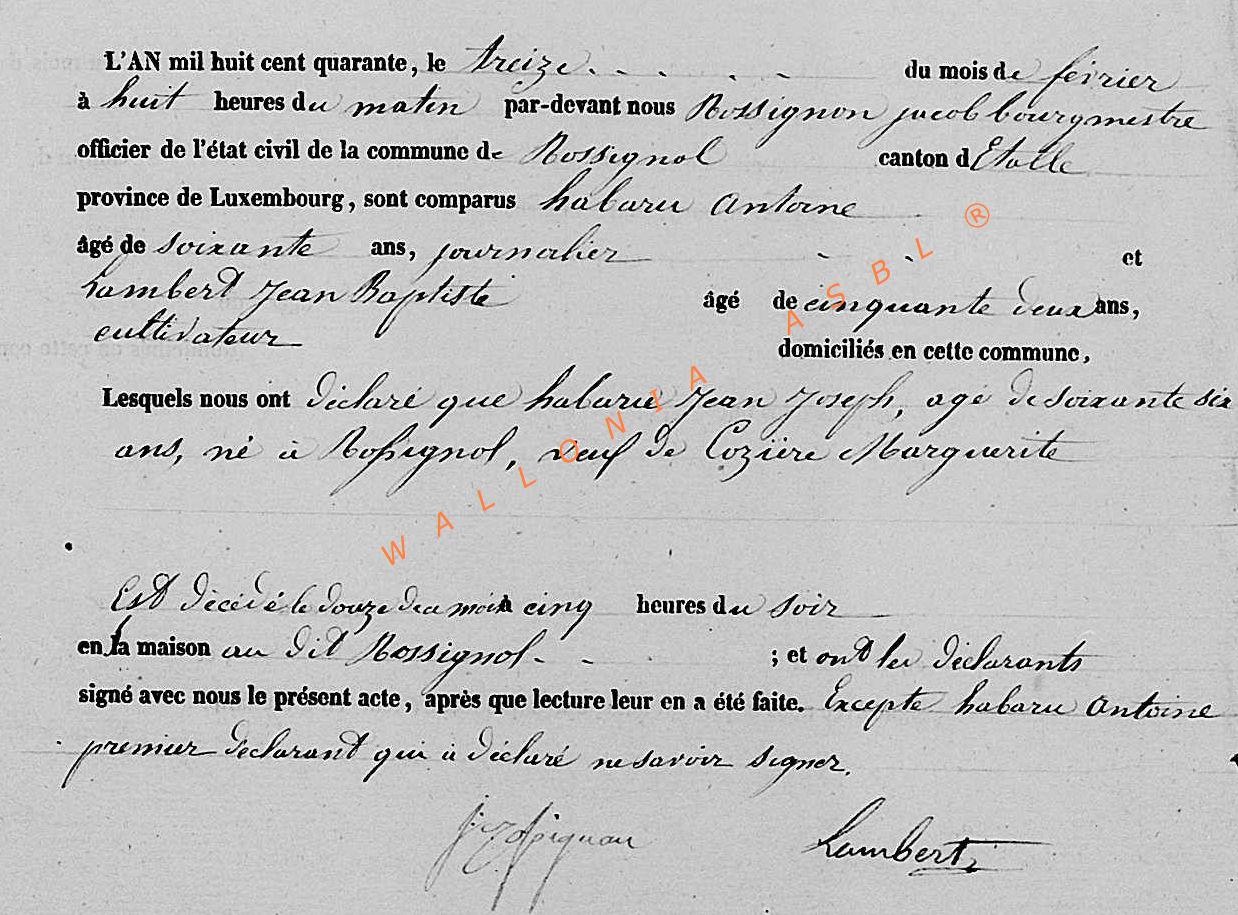 L'AN mil huit cent quarante, le treize. - - - - du mois de février
à huit heures du matin par-devant nous Rossignon jacob bourgmestre
officier de l'état civil de la commune de Rossignol canton d'Etalle
province de Luxembourg, sont comparus habaru Antoine
âgé de soixante ans, journalier - - et
Lambert Jean Baptiste âgé de cinquante deux ans,
cultivateur domiciliés en cette commune,
Lesquels nous ont déclaré que habaru Jean Joseph, agé de soixante six
ans, né à Rossignol, veuf de Cozière Marguerite
Est décédé le douze du mois à cinq heures du soir
en sa maison au dit Rossignol - - ; et ont les déclarants
signé avec nous le présent acte, après que lecture leur en a été faite. Excepte habaru Antoine
premier déclarant qui à déclaré ne savoir signer.
J Rossignon Lambert
WALLONIA ASBL ®